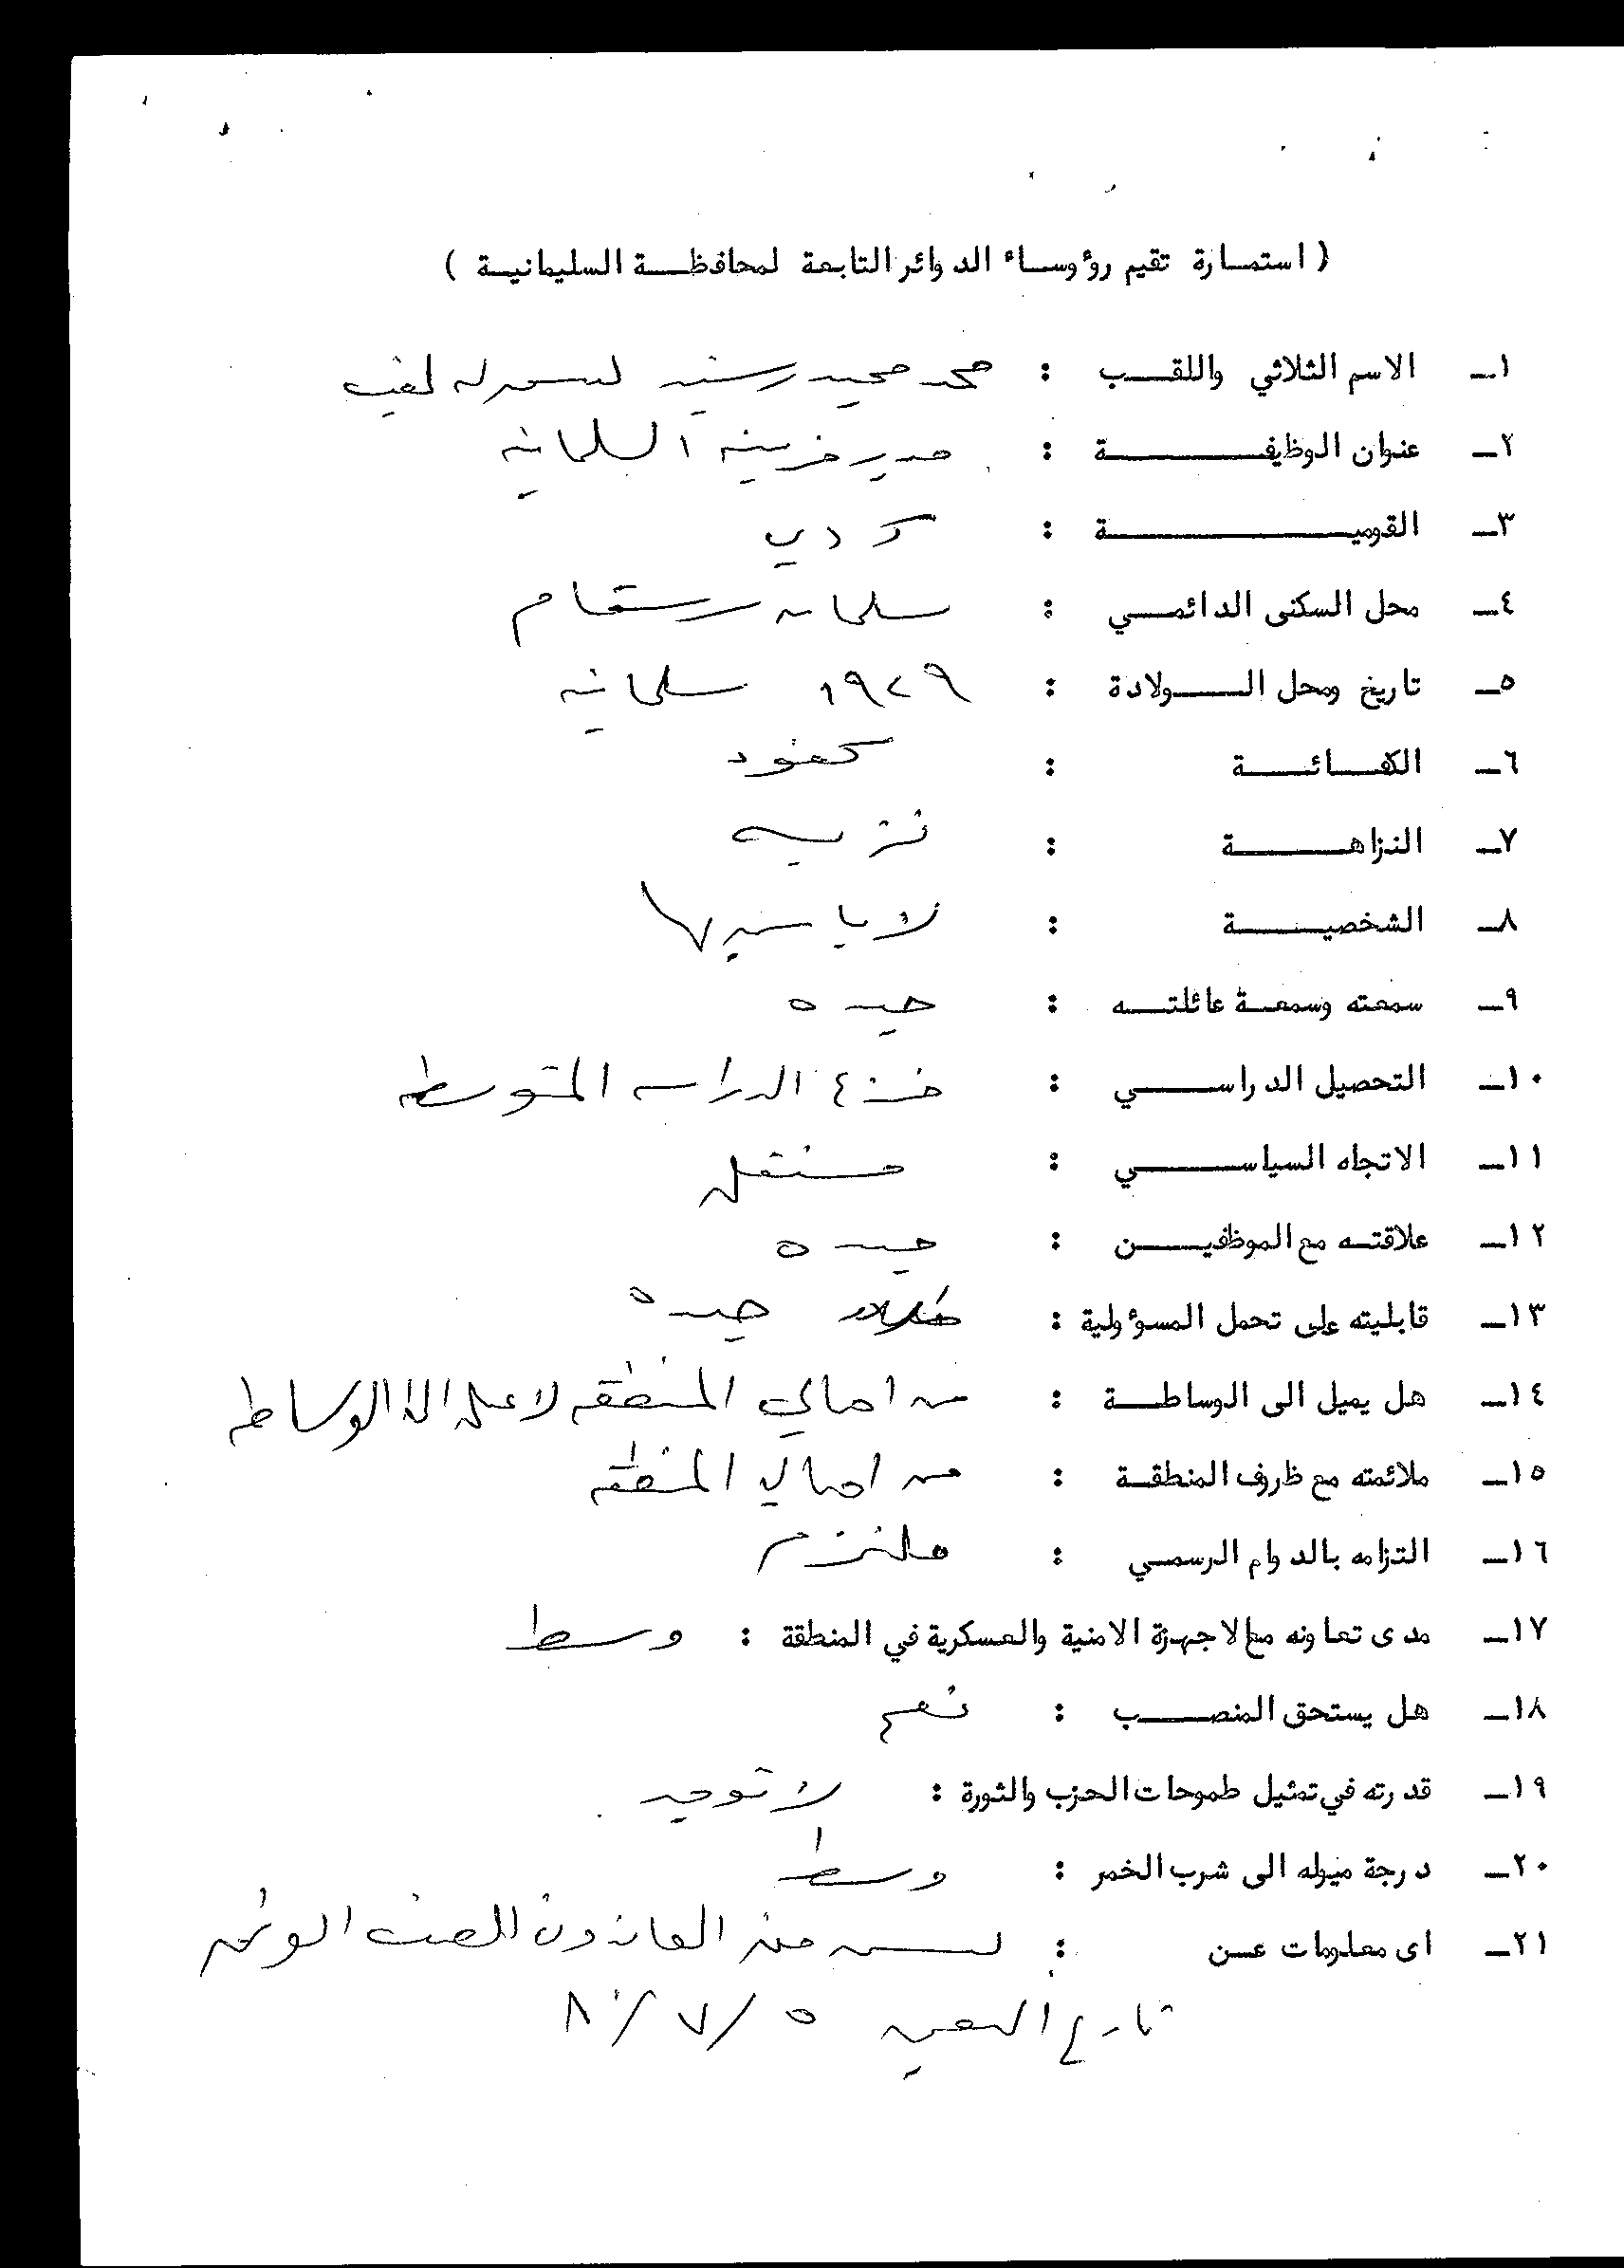 ( استمارة تقيم رؤوساء الدوائر التابعة لمحافظة السليمانية )
١ـ الاسم الثلاثي واللقب : محمد رشيد ليس له لقب
٢ـ عنوان الوظيفة : مدير خزينة السليمانيه
٣ـ القومية : كردي
٤ـ محل السكنى الدائمي : سليمانيه
٥ـ تاريخ ومحل الولادة : ١٩٢٩ سليمانيه
٦ـ الكفائة : كفوء
٧ـ النزاهة : نزيه
٨ـ الشخصية : لا باس بها
٩ـ سمعته وسمعة عائلته : جيده
١٠ـ التحصيل الدراسي : الدراسه المتوسطه
١١ـ الاتجاه السياسي : مستقل
١٢ـ علاقته مع الموظفين : جيده
١٣ـ قابليته على تحمل المسؤولية : جيده
١٤ـ هل يميل الى الوساطة : من اهالي المنطقه لا الوساطه
١٥ـ ملائمته مع ظروف المنطقة : من اهالي المنطقه
١٦ـ التزامه بالدوام الرسمي : ملتزم
١٧ـ مدى تعاونه مع الاجهزة الامنية والعسكرية في المنطقة : وسط
١٨ـ هل يستحق المنصب : نعم
١٩ـ قدرته في تمثيل طموحات الحزب والثورة : لا توجد
٢٠ـ درجة ميوله الى شرب الخمر : وسط
٢١ـ اى معلومات عن : ليس من العائدون للصف الوطني
تاريخ التعين ٥/٧/٨٠